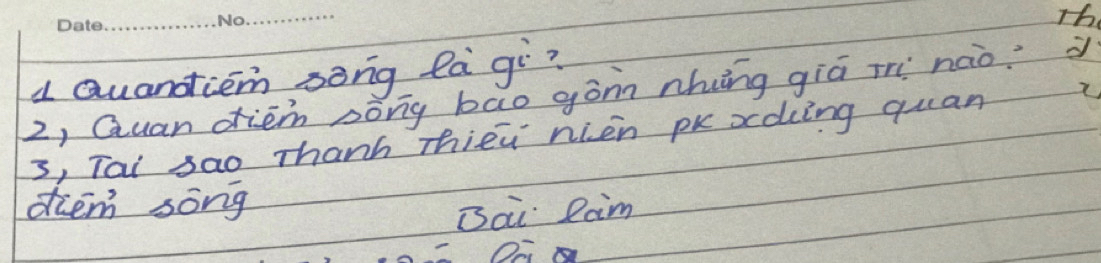 Date................No..............
1 Quan điểm sống là gì?
2, Quan điểm sống bao gồm những giá trị nào?
3, Tại sao Thanh Thiếu niên pk xdựng quan
điểm sống
Bài làm